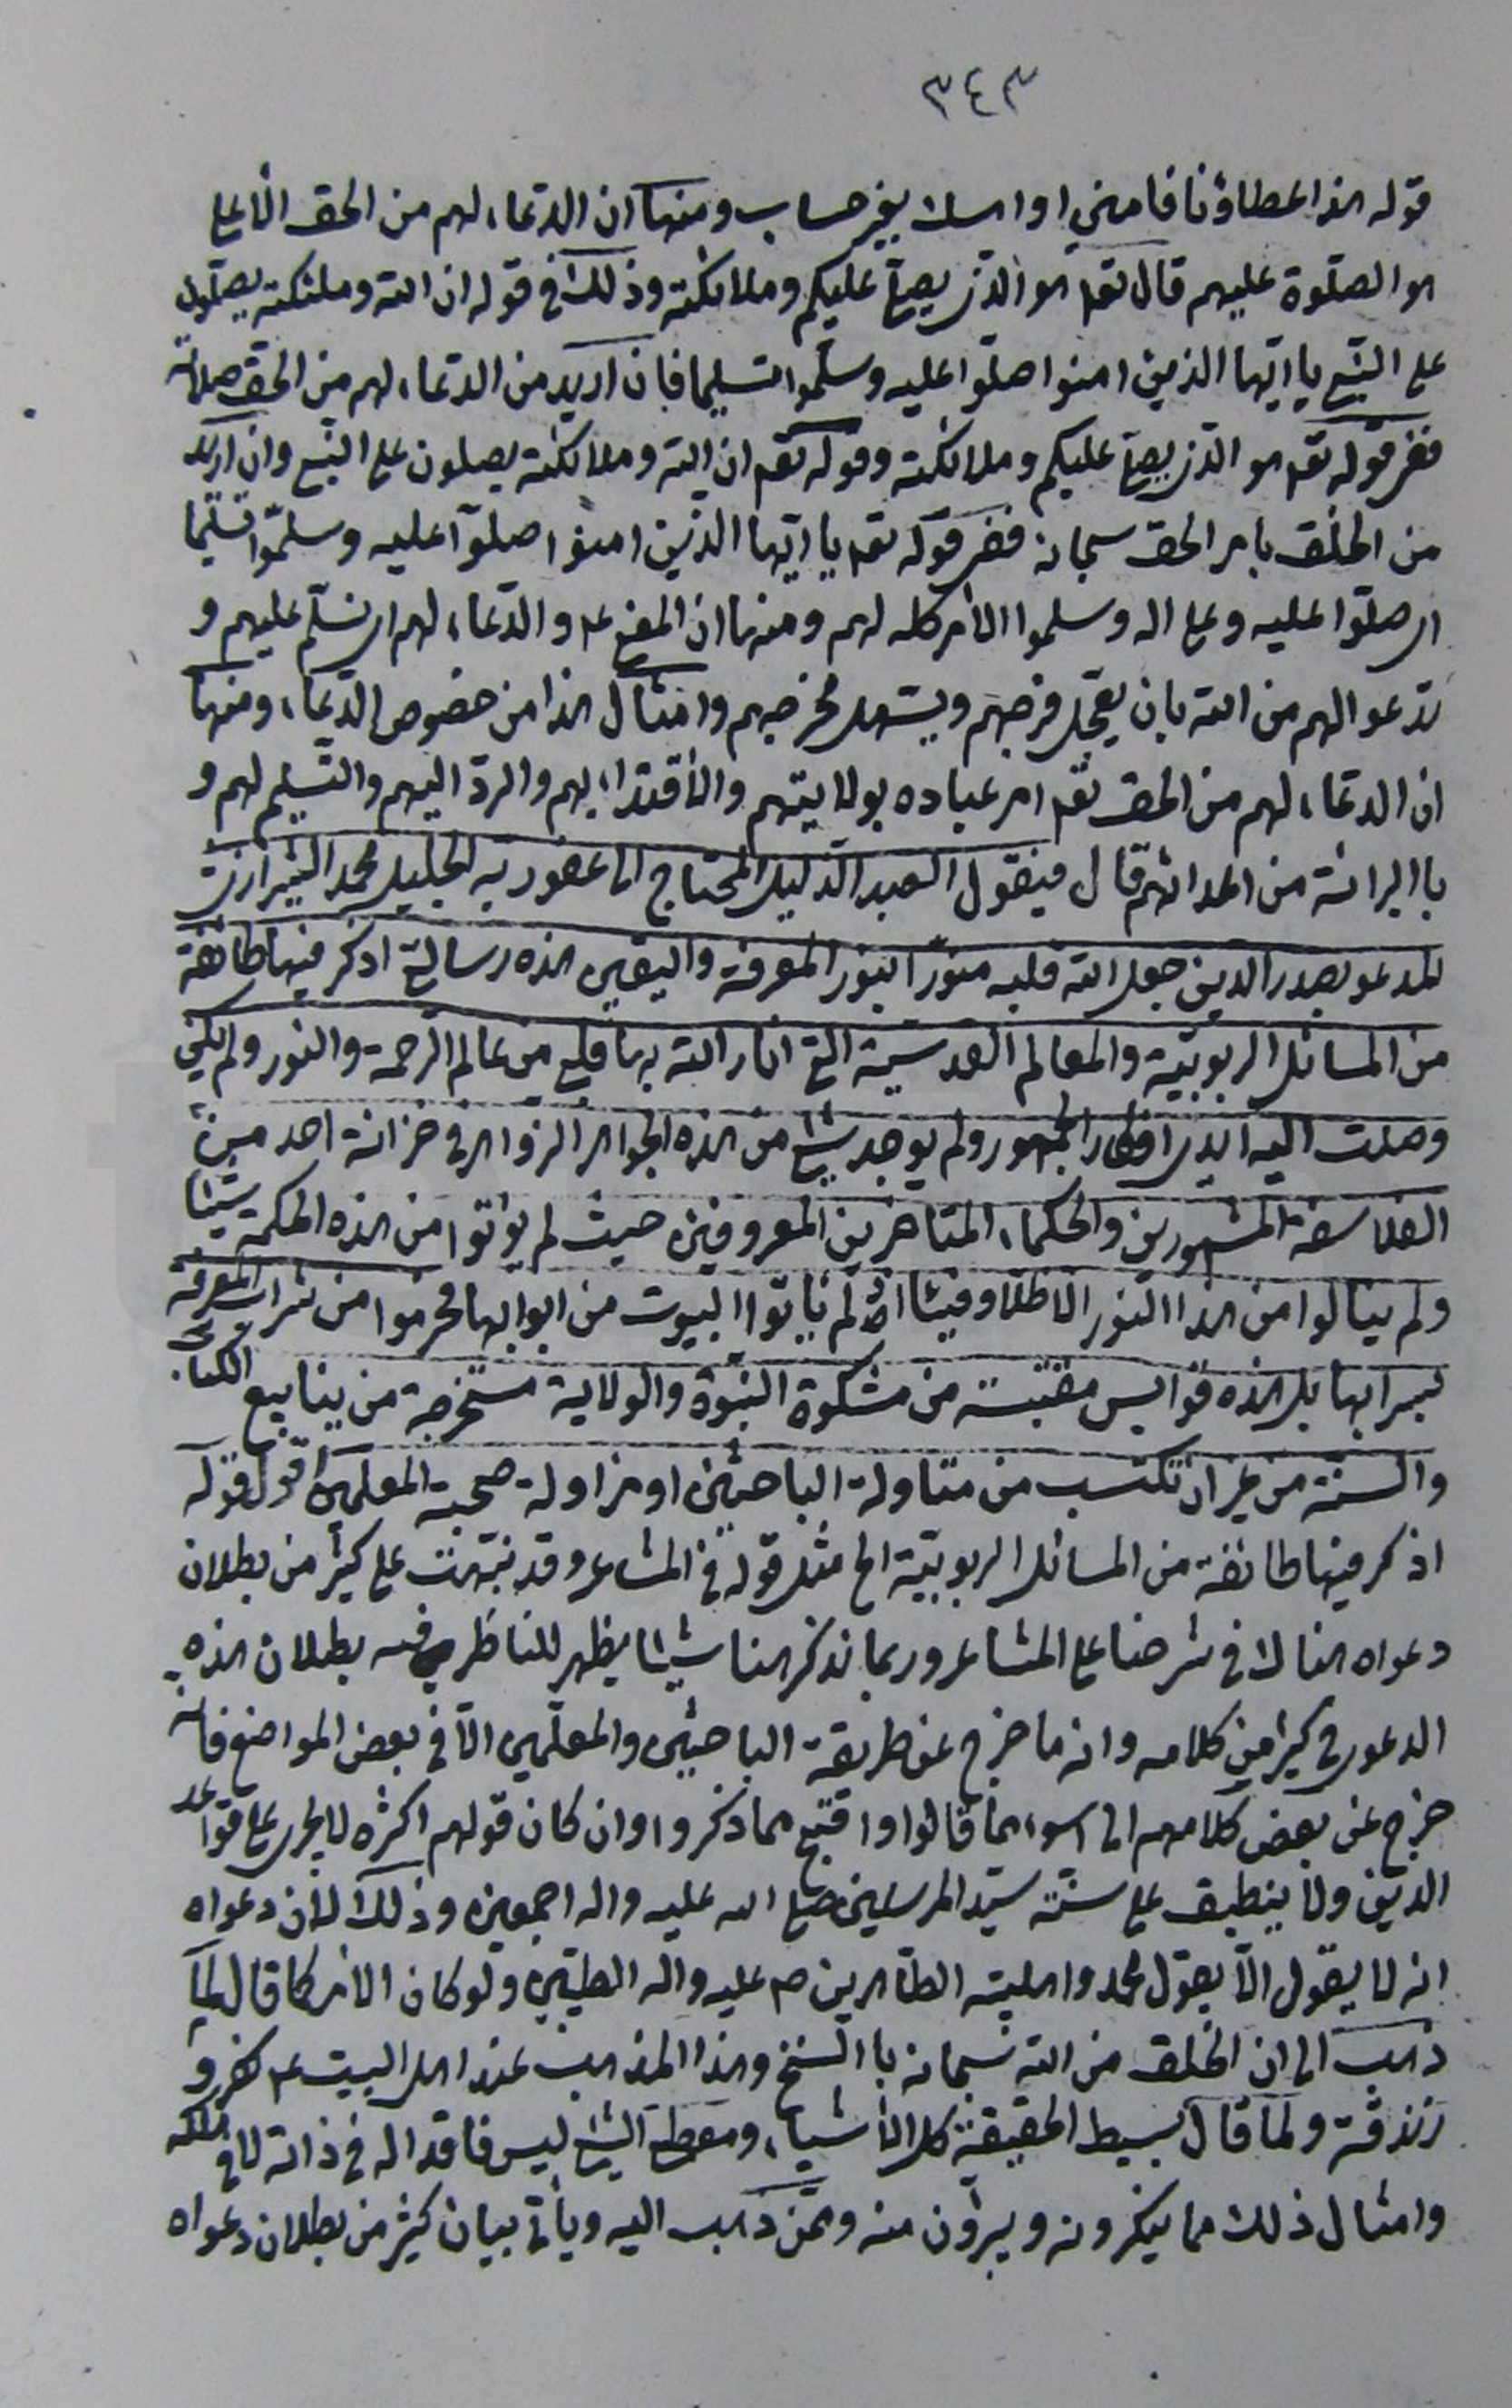 ٣٤٣
قوله هذا عطاؤنا فامنن او امسك بغير حساب ومنها ان الدعاء لهم من الحق الاعلى
هو الصلوة عليهم قال تعه هو الذي يصلي عليكم وملائكته وذلك في قوله ان الله وملئكته يصلون
على النبي يا ايها الذين امنوا صلوا عليه وسلموا تسليما فان اريد من الدعاء لهم من الحق صلاته
ففي قوله تعه هو الذي يصلي عليكم وملائكته وقوله تعه ان الله وملائكته يصلون على النبي وان اريد
من الخلق بامر الحق سبحانه ففي قوله تعه يا ايها الذين امنوا صلوا عليه وسلموا تسليما
اي صلوا عليه وعلى اله وسلموا الامر كله لهم ومنها ان المعني والدعاء لهم اي نسلم عليهم و
ندعوا لهم من الله بان يعجل فرجهم ويسهل مخرجهم وامثال هذا من خصوص الدعاء ومنها
ان الدعاء لهم من الحق تعه امر عباده بولايتهم والاقتداء بهم والرد اليهم والتسليم لهم و
باالبرائة من اعدائهم قال فيقول العبد الذليل المحتاج الى عفو ربه الجليل محمد الشيرازي
المدعو بصدر الدين جعل الله قلبه منورا بنور المعرفة واليقين هذه رسالة اذكر فيها طائفة
من المسائل الربوبية والمعالم القدسية التي انار الله بها قلبي من عالم الرحمة والنور ولم يكن
وصلت اليه ايدي افكار الجمهور ولم يوجد شئ من هذه الجواهر الزواهر في خزانة احد من
الفلاسفة المشهورين والحكماء المتاخرين المعروفين حيث لم يؤتوا من هذه الحكمة شيئا
ولم ينالوا من هذا النور الا ظلا وفيئا اذ لم ياتوا البيوت من ابوابها فحرموا من شراب المعرفة
بسرابها بل هذه قوابس مقتبسة من مشكوة النبوة والولاية مستخرجة من ينابيع الكتاب
والسنة من غير ان تكتسب من مناولة الباحثين او مزاولة صحبة المعلمين اقول قوله
اذكر فيها طائفة من المسائل الربوبية الخ مثل قوله في المشاعر وقد نبهت على كثير من بطلان
دعواه هنالك في شرحنا على المشاعر وربما نذكر هنا شيئا يظهر للناظر فيه بطلان هذه
الدعوى في كثير من كلامه وانه ما خرج عن طريقة الباحثين والمعلمين الا في بعض المواضع فانه
خرج عن بعض كلامهم الى اسوء مما قالوا واقبح مما ذكروا وان كان قولهم اكثره لا يجري على قواعد
الدين ولا ينطبق على سنة سيد المرسلين صلى الله عليه واله اجمعين وذلك لان دعواه
انه لا يقول الا بقول محمد واهلبيته الطاهرين ص عليه واله الطيبين ولو كان الامر كما قال لما
ذهب الى ان الخلق من الله سبحانه باالسنخ وهذا المذهب عند اهل البيت ع كفر و
زندقة ولما قال بسيط الحقيقة كل الاشياء ومعطي الشئ ليس فاقدا له في ذاته لا في ملكه
وامثال ذلك مما ينكرونه ويبرؤن منه وممن ذهب اليه وياتي بيان كثير من بطلان دعواه